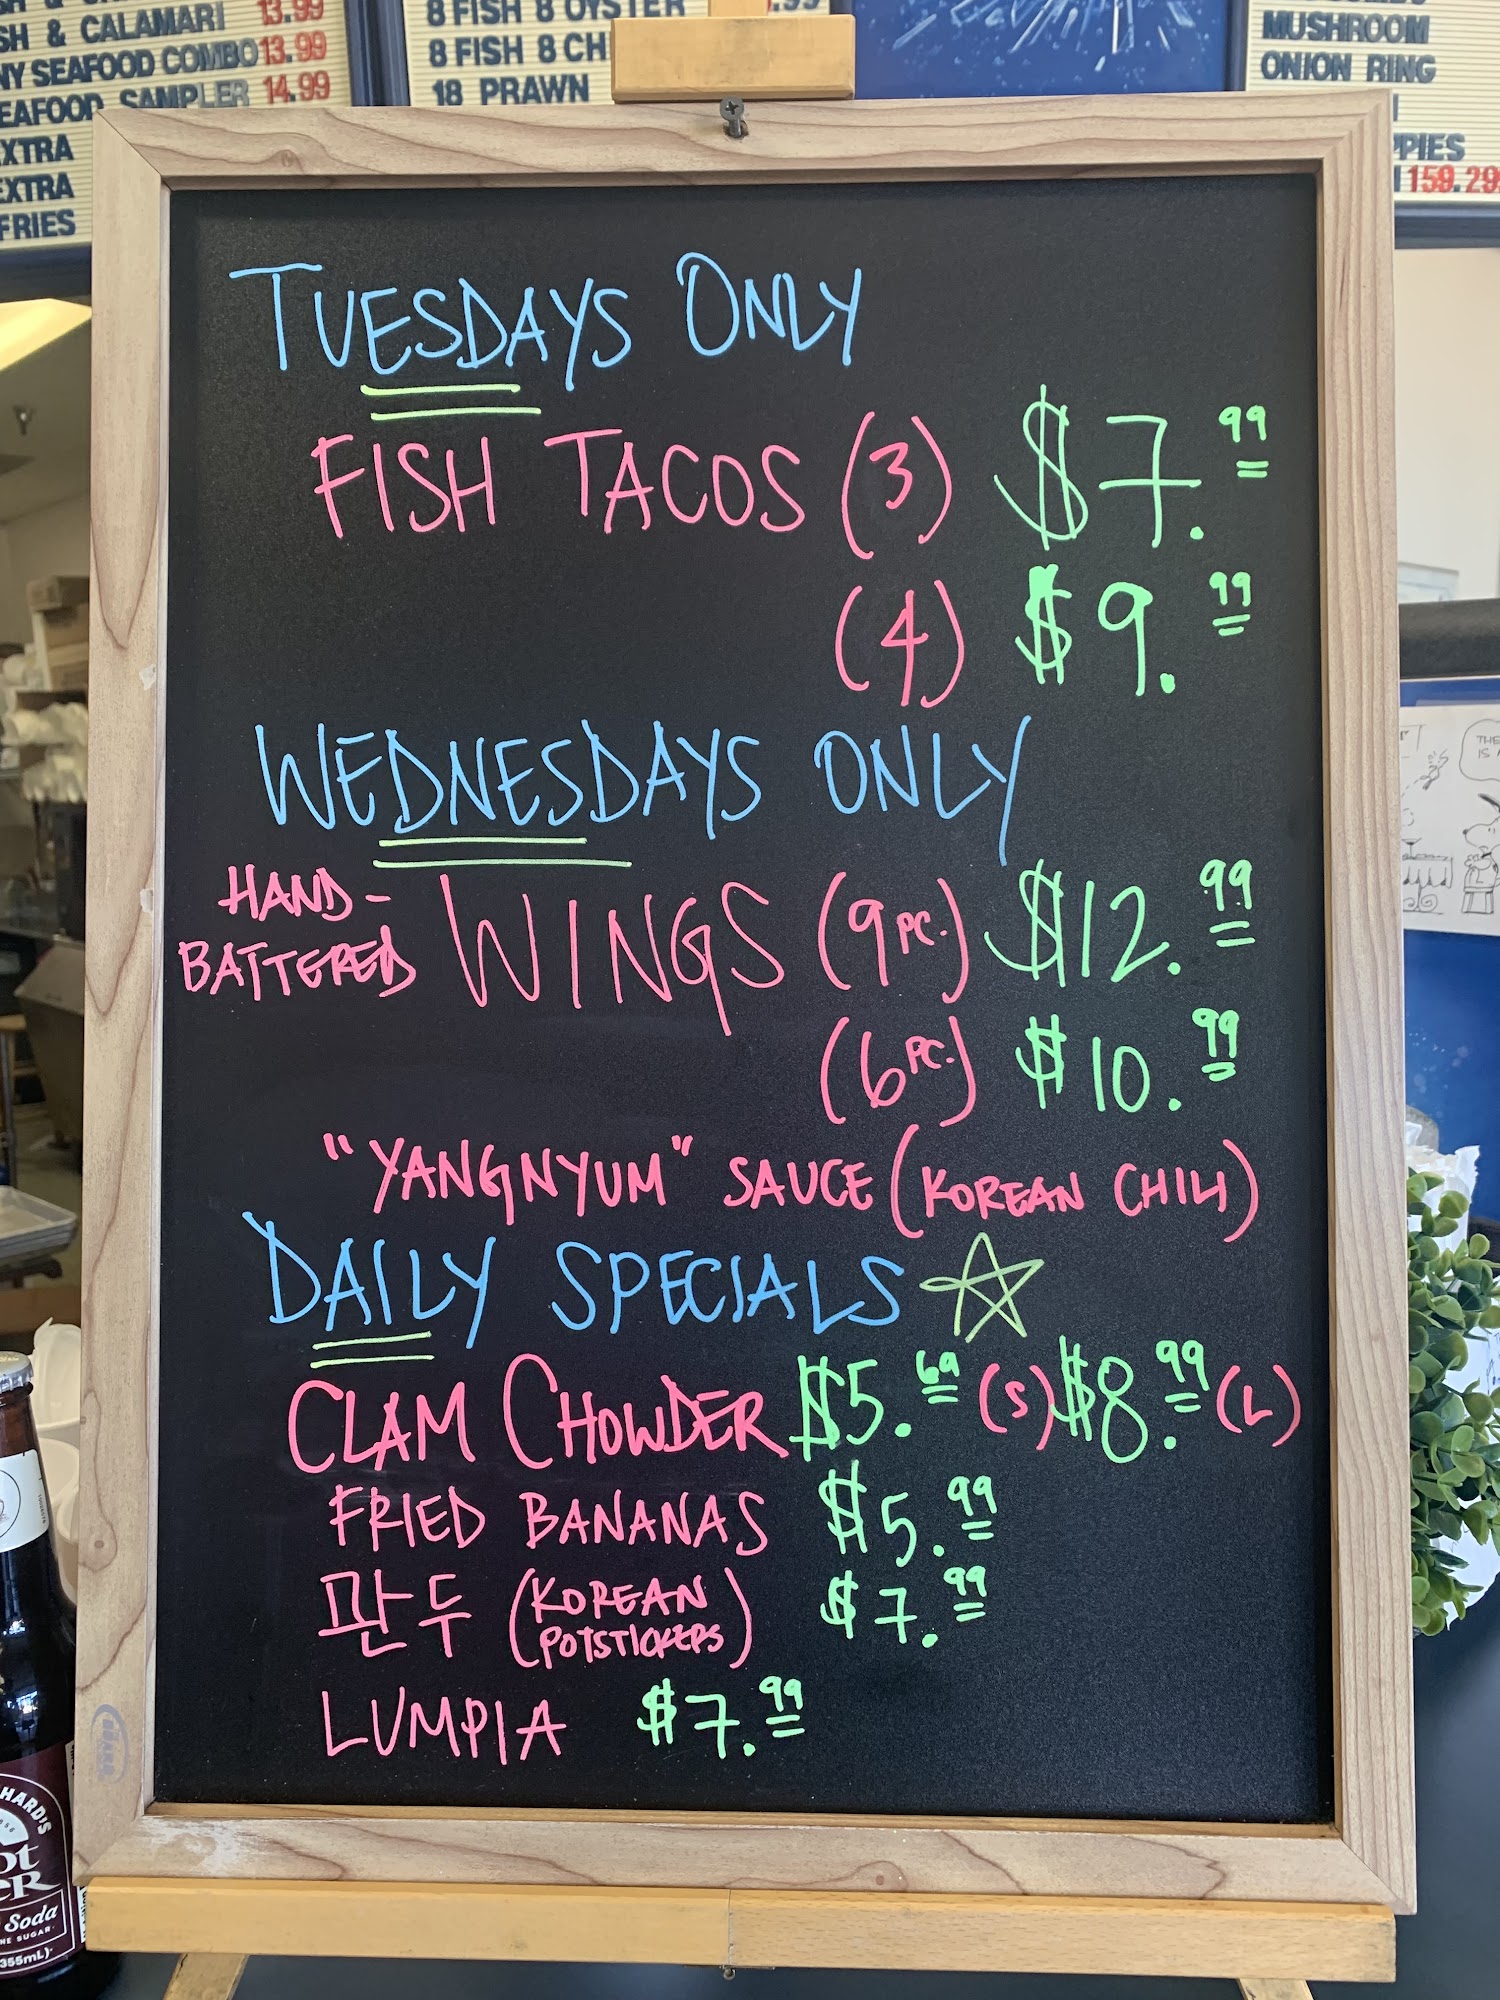 & CALAMARI 13.99
NY SEAFOOD COMBO 13.99
SEAFOOD SAMPLER 14.99
EXTRA
EXTRA
FRIES
8 FISH 8 OYSTER
8 FISH 8 CH
18 PRAWN
MUSHROOM
ONION RING
PPIES
159.29
TUESDAYS ONLY
FISH TACOS (3) $7.99
(4) $9.99
WEDNESDAYS ONLY
HAND-
BATTERED WINGS (9 PC.) $12.99
(6 PC.) $10.99
"YANGNYUM" SAUCE (KOREAN CHILI)
DAILY SPECIALS
CLAM CHOWDER $5.69 (S) $8.99 (L)
FRIED BANANAS $5.99
만두 (KOREAN POTSTICKERS) $7.99
LUMPIA $7.99
HARD'S
Soda
355mL)